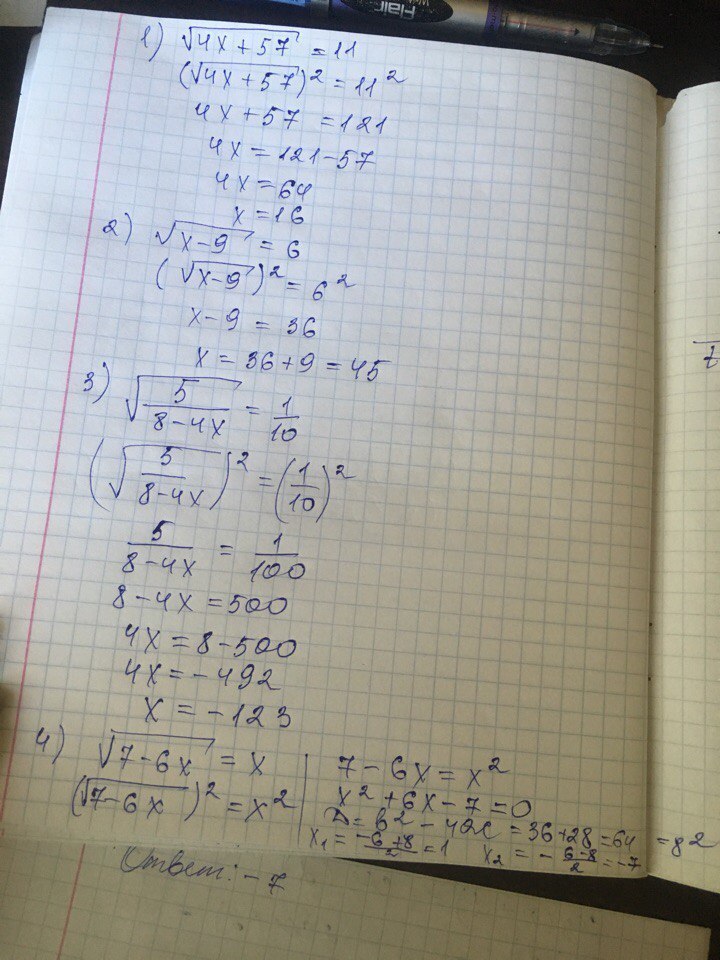 Flair
1) √(4x+57) = 11
(√(4x+57))² = 11²
4x+57 = 121
4x = 121-57
4x = 64
x = 16
2) √(x-9) = 6
(√(x-9))² = 6²
x-9 = 36
x = 36+9 = 45
3) √(5/(8-4x)) = 1/10
(√(5/(8-4x)))² = (1/10)²
5/(8-4x) = 1/100
8-4x = 500
4x = 8-500
4x = -492
x = -123
4) √(7-6x) = x
(√(7-6x))² = x²
7-6x = x²
x²+6x-7=0
D = b²-4ac = 36+28 = 64 = 8²
x₁ = (-6+8)/2 = 1 x₂ = -(6-8)/2 = -7
Ответ: -7